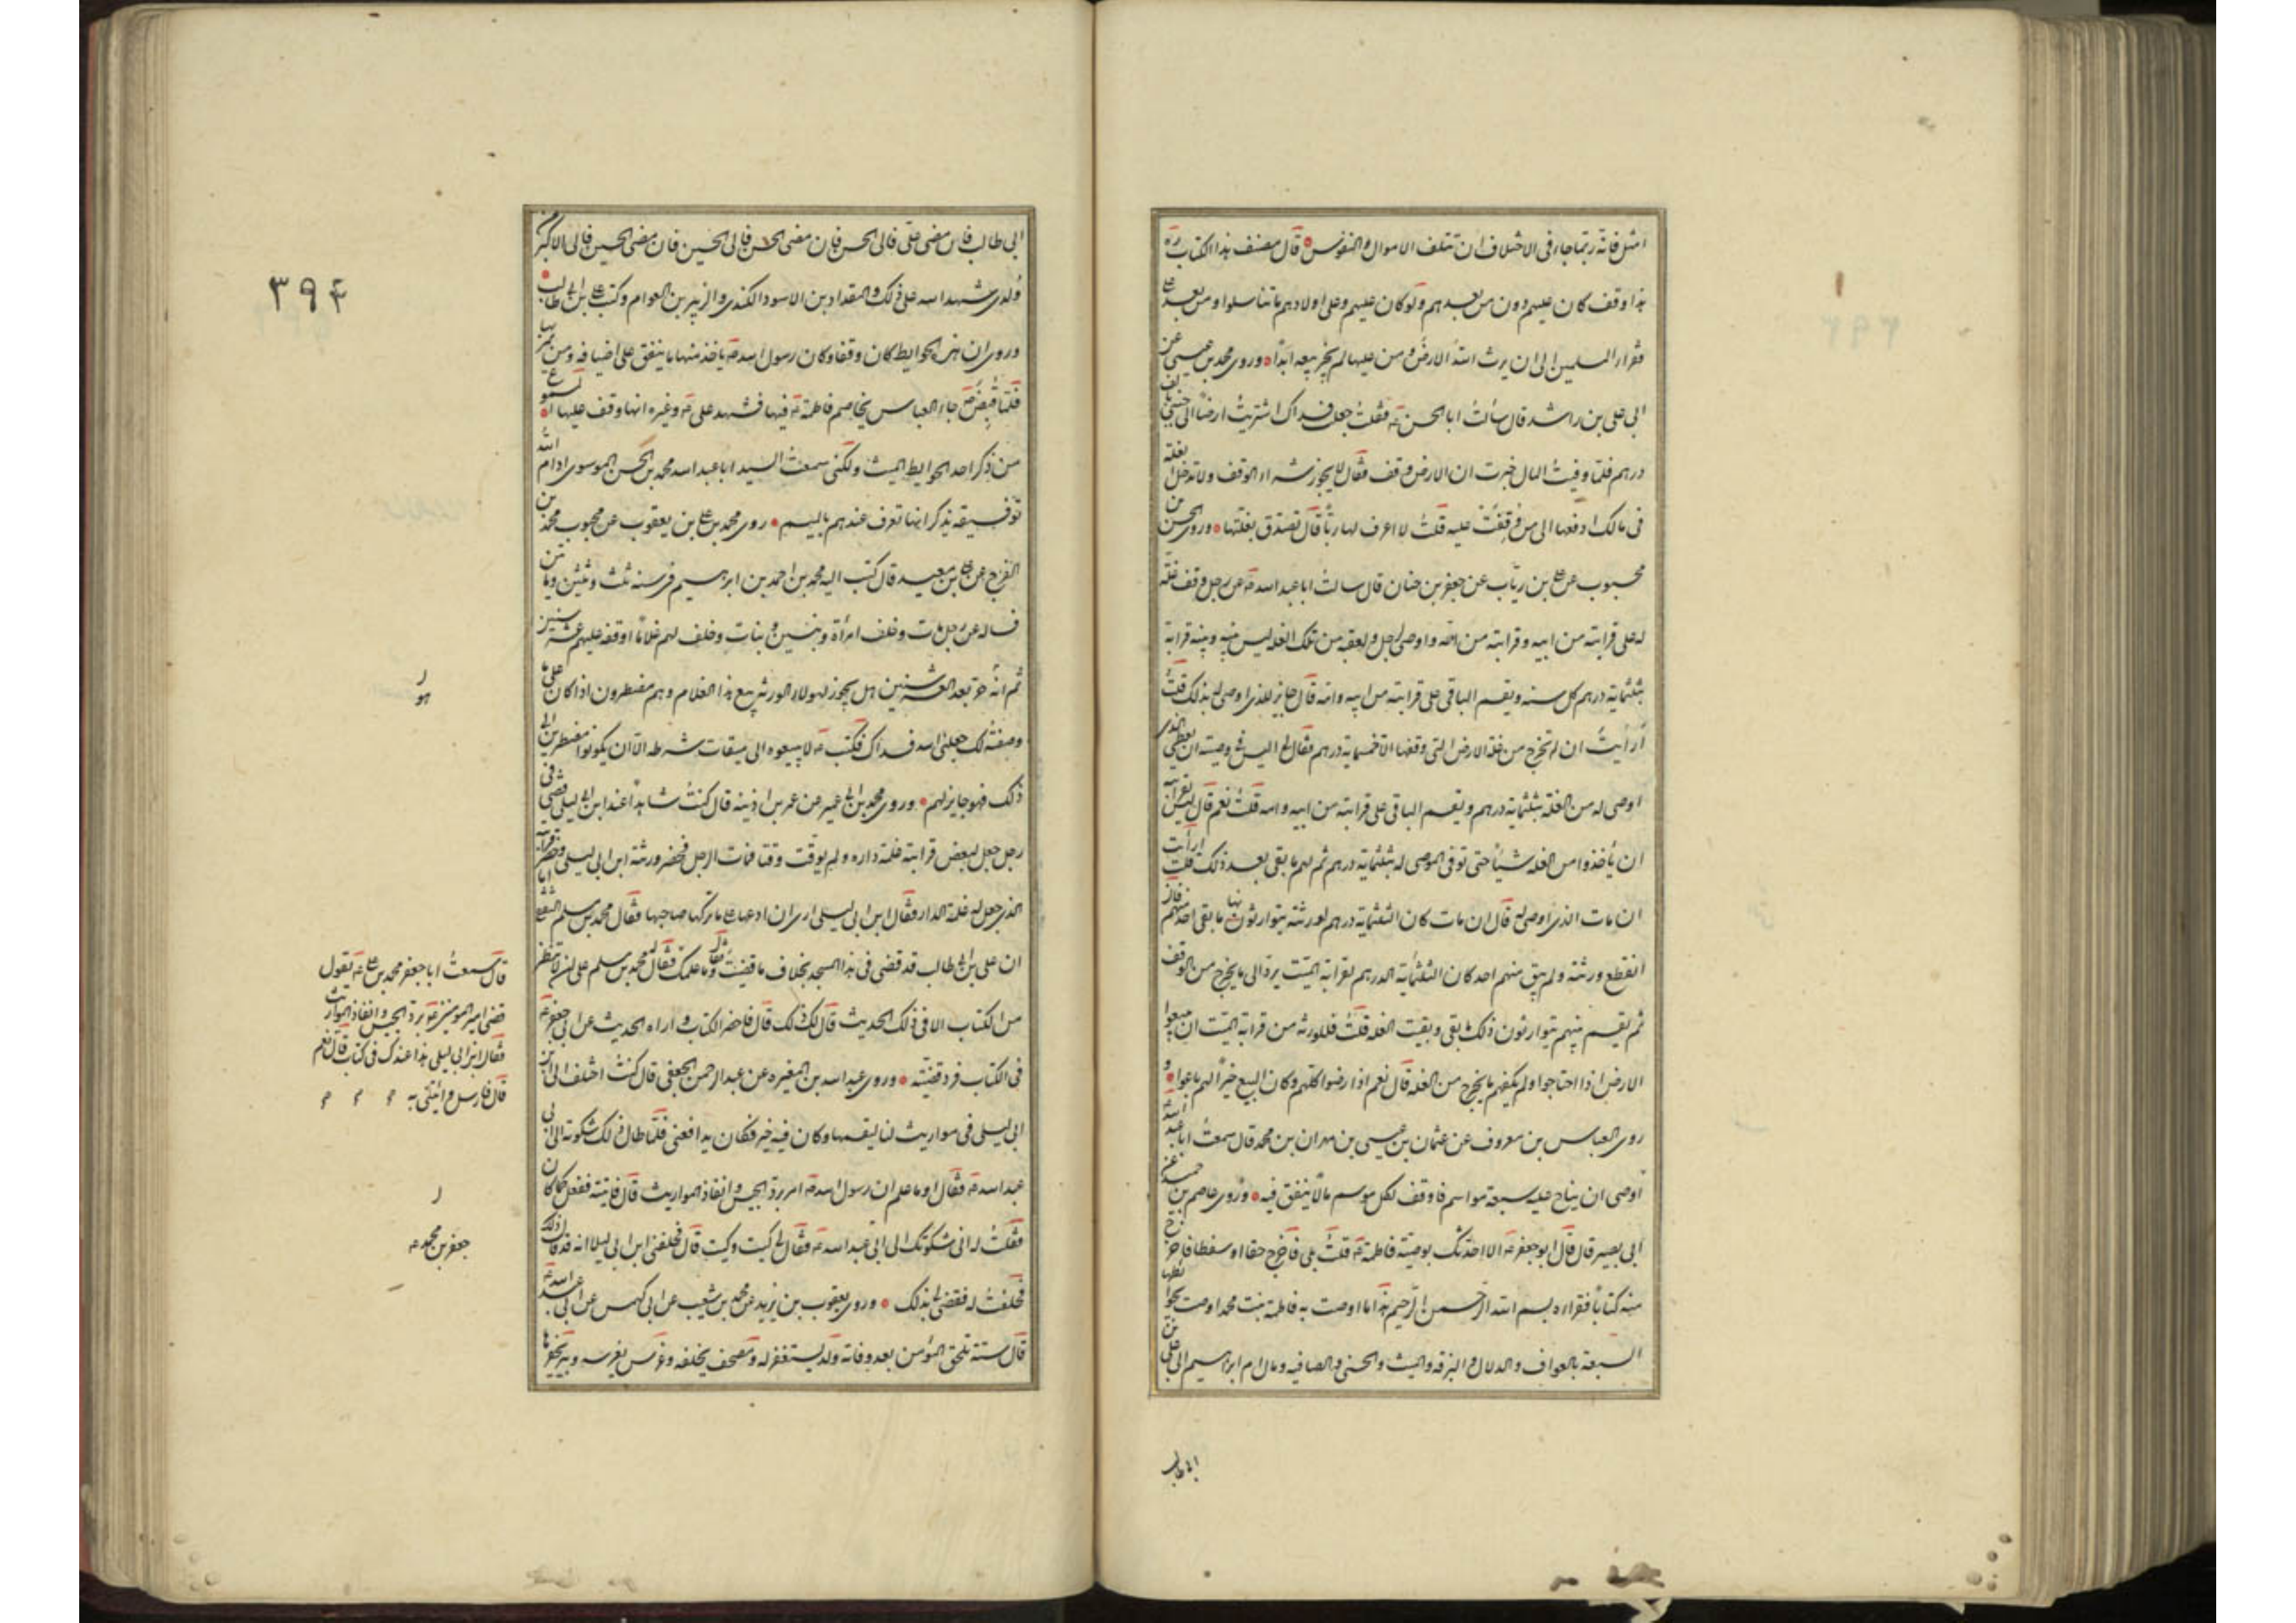 امثل فانه ربما جاء فى الاختلاف ان تتلف الاموال والنفوس قال مصنف هذا الكتاب ره
هذا وقف كان عليهم دون من بعدهم ولو كان عليهم وعلى اولادهم ما تناسلوا ومن بعد على
فقراء المسلمين الى ان يرث الله الارض ومن عليها لم يجز بيعه ابدا وروى محمد بن عيسى عن
ابى على بن راشد قال سألت ابا الحسن ع فقلت جعلت فداك اشتريت ارضا الى جنبى بالف
درهم فلما وفيت المال خبرت ان الارض وقف فقال لا يجوز شراء الوقف ولا تدخل الغلة
فى مالك ادفعها الى من وقفت عليه قلت لا اعرف لها ربا قال تصدق بغلتها وروى الحسن بن
محبوب عن على بن رياب عن جعفر بن حنان قال سالت ابا عبد الله ع عن رجل وقف غلة
له على قرابته من ابيه و قرابته من امه واوصى لرجل ولعقبه من تلك الغله ليس بينه وبينه قرابة
بثلثماية درهم كل سنه ويقسم الباقى على قرابته من ابيه وامه قال جايز للذى اوصى له بذلك قلت
أرأيت ان لم تخرج من غلة الارض التى وقفها الا خمسماية درهم فقال اليس فى وصيته ان يعطى الذى
اوصى له من الغلة بثلثماية درهم ويقسم الباقى على قرابته من ابيه وامه قلت نعم قال ليس لقرابته
ان يأخذوا من الغله شيأ حتى توفى الموصى له بثلثماية درهم ثم لهم ما بقى بعد ذلك قلت ارأيت
ان مات الذى اوصى له قال ان مات كان الثلثماية درهم لورثته يتوارثون بها ما بقى احد منهم فاذا
انقطع ورثته ولم يبق منهم احد كان الثلثماية الدرهم لقرابة الميت يرد الى ما يخرج من الوقف
ثم يقسم بينهم يتوارثون ذلك ما بقى وبقيت الغله قلت فللورثه من قرابة الميت ان يبيعوا
الارض اذا احتاجوا ولم يكفهم ما يخرج من الغله قال نعم اذا رضوا كلهم وكان البيع خيرا لهم باعوا و
روى العباس بن معروف عن عثمان بن عيسى بن مهران بن محمد قال سمعت ابا عبد الله
اوصى ان يناح عليه سبعة مواسم فاوقف لكل موسم مالا ينفق فيه وروى عاصم بن حميد عن
ابى بصير قال قال ابو جعفر ع الا احدثك بوصية فاطمة ع قلت بلى فاخرج حقا او سفطا فاخرج
منه كتابا فقراه بسم الله الرحمن الرحيم هذا ما اوصت به فاطمة بنت محمد اوصت بحوائطها
السبعة بالعواف والدلال والبرقه والميث والحسنى والصافيه ومال ام ابراهيم الى على بن
ابى طالب
ابى طالب فان مضى على فالى الحسن فان مضى الحسن فالى الحسين فان مضى الحسين فالى الاكبر من
ولدى شهد الله على ذلك والمقداد بن الاسود الكندى والزبير بن العوام وكتب على بن ابى طالب
وروى ان هذه الحوايط كان وقفا وكان رسول الله ص ياخذ منها ما ينفق على اضيافه ومن يمر بها
فلما قبض ص جاء العباس يخاصم فاطمة ع فيها فشهد على ع وغيره انها وقف عليها المسموع
من ذكر احد الحوايط الميث ولكنى سمعت السيد ابا عبد الله محمد بن الحسن الموسوى ادام الله
توفيقه يذكر انها تعرف عندهم بالميثم روى محمد بن على بن محبوب عن محمد بن
الفرج عن على بن معبد قال كتب اليه محمد بن احمد بن ابرهيم فى سنه ثلث وثلثين وماتين
يساله عن رجل مات وخلف امرأة وبنين وبنات وخلف لهم غلاما اوقفه عليهم عشر سنين
ثم انه حر بعد العشر سنين هل يجوز لهولاء الورثه بيع هذا الغلام وهم مضطرون اذا كان على ما
وصفته لك جعلنى الله فداك فكتب ع لا يبيعوه الى ميقات شرطه الا ان يكونوا مضطرين الى
ذلك فهو جايز لهم وروى محمد بن ابى عمير عن عمر بن اذينه قال كنت شاهدا عند ابن ابى ليلى قضى فى
رجل جعل لبعض قرابته غلة داره ولم يوقت وقتا فمات الرجل فحضر ورثته ابن ابى ليلى وحضر قرابته
الذى جعل له غلة الدار فقال ابن ابى ليلى ارى ان ادعها على ما تركها صاحبها فقال محمد بن مسلم الثقفى اما
ان على بن ابى طالب قد قضى فى هذا المسجد بخلاف ما قضيت فقال وما علمك فقال له محمد بن مسلم على ان لا تنظر
من الكتاب الا فى ذلك الحديث قال لك ذلك قال فاحضر الكتاب واراه الحديث عن ابى جعفر ع
فى الكتاب فرد قضيته وروى عبد الله بن المغيره عن عبد الرحمن الجعفى قال كنت اختلف الى ابن
ابى ليلى فى مواريث لنا ليقسمها وكان فيه حبيس فكان يدافعنى فلما طال ذلك شكوته الى ابى
عبد الله ع فقال او ما علم ان رسول الله ص امر برد الحبيس وانفاذ المواريث قال فاتيته ففعل كما كان
فقلت له انى شكوتك الى ابى عبد الله ع فقال لى كيت وكيت قال فحلفنى ابن ابى ليلى انه قد قال ذلك
فحلفت له فقضى لى بذلك وروى يعقوب بن يزيد عن محمد بن شعيب عن ابى كهمس عن ابى عبد الله ع
قال ستة تلحق المؤمن بعد وفاته ولد يستغفر له ومصحف يخلفه وغرس يغرسه وبئر يحفرها
٣٩٤
هو
قال سمعت ابا جعفر محمد بن على ع يقول
قضى امير المومنين ع برد الحبيس وانفاذ المواريث
فقال ابن ابى ليلى هذا عندك فى كتاب قال نعم
قال فارسل وائتنى به
جعفر بن محمد ع